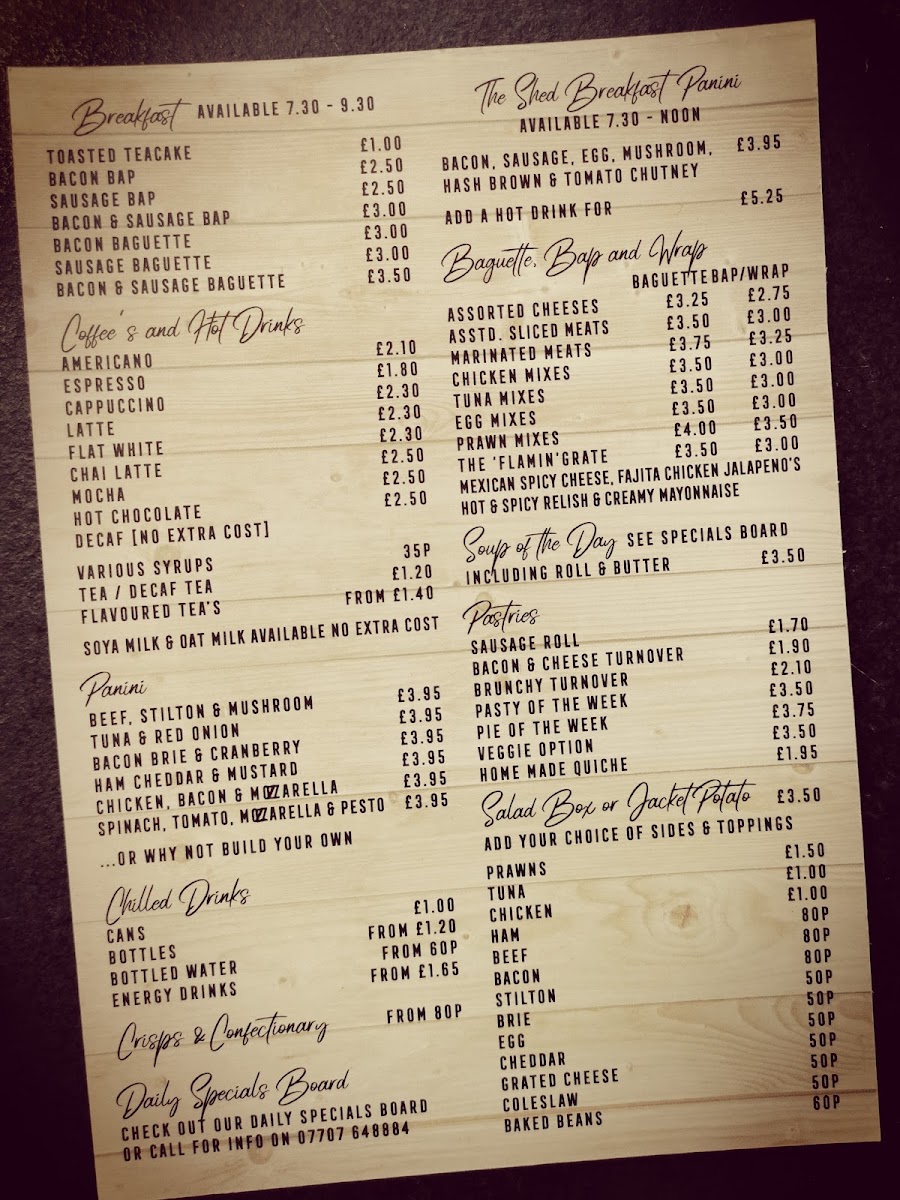 Breakfast AVAILABLE 7.30 - 9.30
TOASTED TEACAKE £1.00
BACON BAP £2.50
SAUSAGE BAP £2.50
BACON & SAUSAGE BAP £3.00
BACON BAGUETTE £3.00
SAUSAGE BAGUETTE £3.00
BACON & SAUSAGE BAGUETTE £3.50
Coffee's and Hot Drinks
AMERICANO £2.10
ESPRESSO £1.80
CAPPUCCINO £2.30
LATTE £2.30
FLAT WHITE £2.30
CHAI LATTE £2.50
MOCHA £2.50
HOT CHOCOLATE £2.50
DECAF [NO EXTRA COST]
VARIOUS SYRUPS 35P
TEA / DECAF TEA £1.20
FLAVOURED TEA'S FROM £1.40
SOYA MILK & OAT MILK AVAILABLE NO EXTRA COST
Panini
BEEF, STILTON & MUSHROOM £3.95
TUNA & RED ONION £3.95
BACON BRIE & CRANBERRY £3.95
HAM CHEDDAR & MUSTARD £3.95
CHICKEN, BACON & MOZZARELLA £3.95
SPINACH, TOMATO, MOZZARELLA & PESTO £3.95
...OR WHY NOT BUILD YOUR OWN
Chilled Drinks
CANS £1.00
BOTTLES FROM £1.20
BOTTLED WATER FROM 60P
ENERGY DRINKS FROM £1.65
Crisps & Confectionary FROM 80P
Daily Specials Board
CHECK OUT OUR DAILY SPECIALS BOARD
OR CALL FOR INFO ON 07707 648884
The Shed Breakfast Panini
AVAILABLE 7.30 - NOON
BACON, SAUSAGE, EGG, MUSHROOM, £3.95
HASH BROWN & TOMATO CHUTNEY
ADD A HOT DRINK FOR £5.25
Baguette, Bap and Wrap
BAGUETTE BAP/WRAP
ASSORTED CHEESES £3.25 £2.75
ASSTD. SLICED MEATS £3.50 £3.00
MARINATED MEATS £3.75 £3.25
CHICKEN MIXES £3.50 £3.00
TUNA MIXES £3.50 £3.00
EGG MIXES £3.50 £3.00
PRAWN MIXES £4.00 £3.50
THE 'FLAMIN'GRATE £3.50 £3.00
MEXICAN SPICY CHEESE, FAJITA CHICKEN JALAPENO'S
HOT & SPICY RELISH & CREAMY MAYONNAISE
Soup of the Day SEE SPECIALS BOARD
INCLUDING ROLL & BUTTER £3.50
Pastries
SAUSAGE ROLL £1.70
BACON & CHEESE TURNOVER £1.90
BRUNCHY TURNOVER £2.10
PASTY OF THE WEEK £3.50
PIE OF THE WEEK £3.75
VEGGIE OPTION £3.50
HOME MADE QUICHE £1.95
Salad Box or Jacket Potato £3.50
ADD YOUR CHOICE OF SIDES & TOPPINGS
PRAWNS £1.50
TUNA £1.00
CHICKEN £1.00
HAM 80P
BEEF 80P
BACON 80P
STILTON 50P
BRIE 50P
EGG 50P
CHEDDAR 50P
GRATED CHEESE 50P
COLESLAW 50P
BAKED BEANS 60P